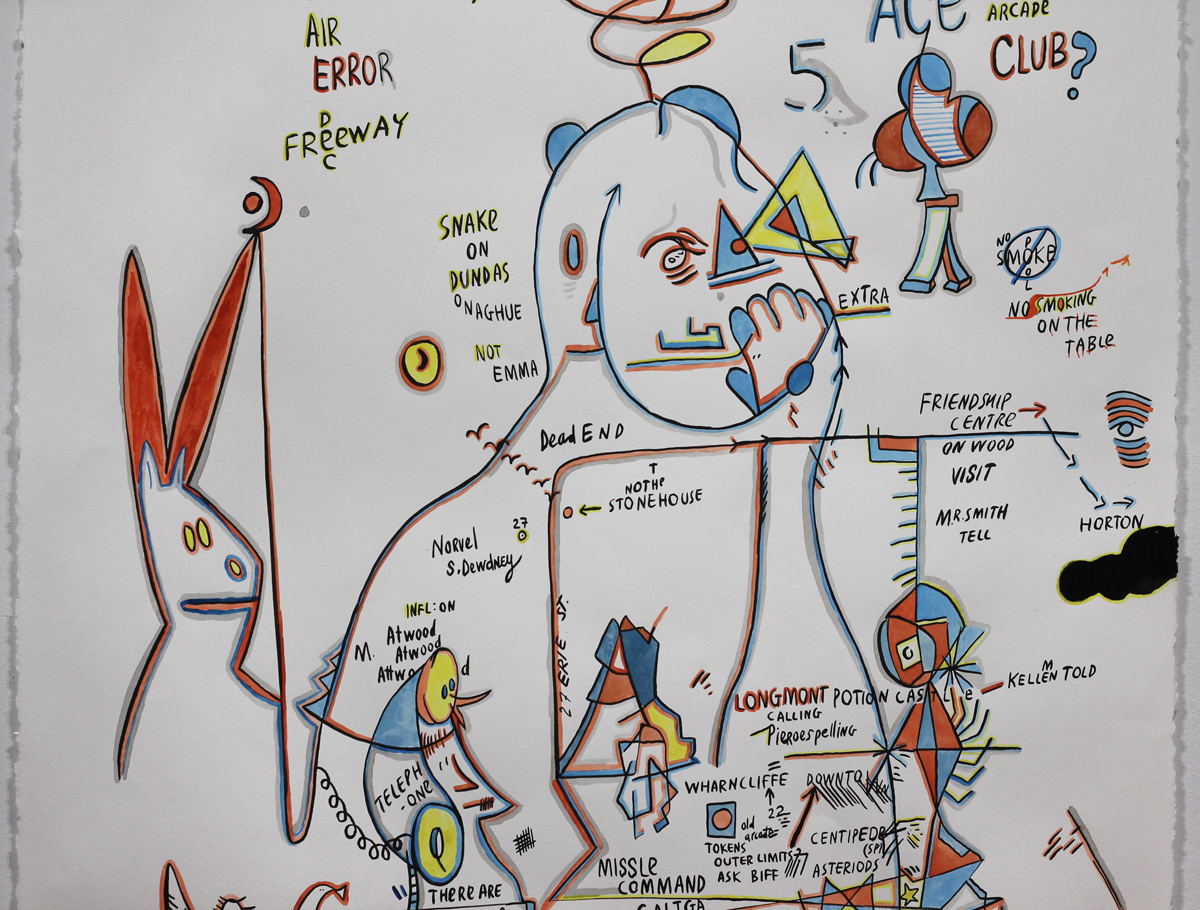 AIR
ERROR
FREEWAY
D
C
ACE
ARCADE
CLUB?
5
SNAKE
ON
DUNDAS
ONAGHUE
NOT
EMMA
EXTRA
NO
SMOKE
P
O
L
NO SMOKING
ON THE
TABLE
FRIENDSHIP
CENTRE
ON WOOD
VISIT
MR. SMITH
TELL
HORTON
Dead END
T
NOTHe
STONEHOUSE
27
Norvel
S. Dewdney
INFL: ON
M. Atwood
Atwood
Attwood
27 ERIE ST.
LONGMONT POTION CASTLe
M
KELLEN TOLD
CALLING
Pierrespelling
TELEPH
-ONE
WHARNCLIFFE
DOWNTO
22
old
arcade
TOKENS
OUTER LIMITS?
ASK BIFF
CENTIPEDE
(SP)
ASTERIODS
MISSLE
COMMAND
THERE ARE